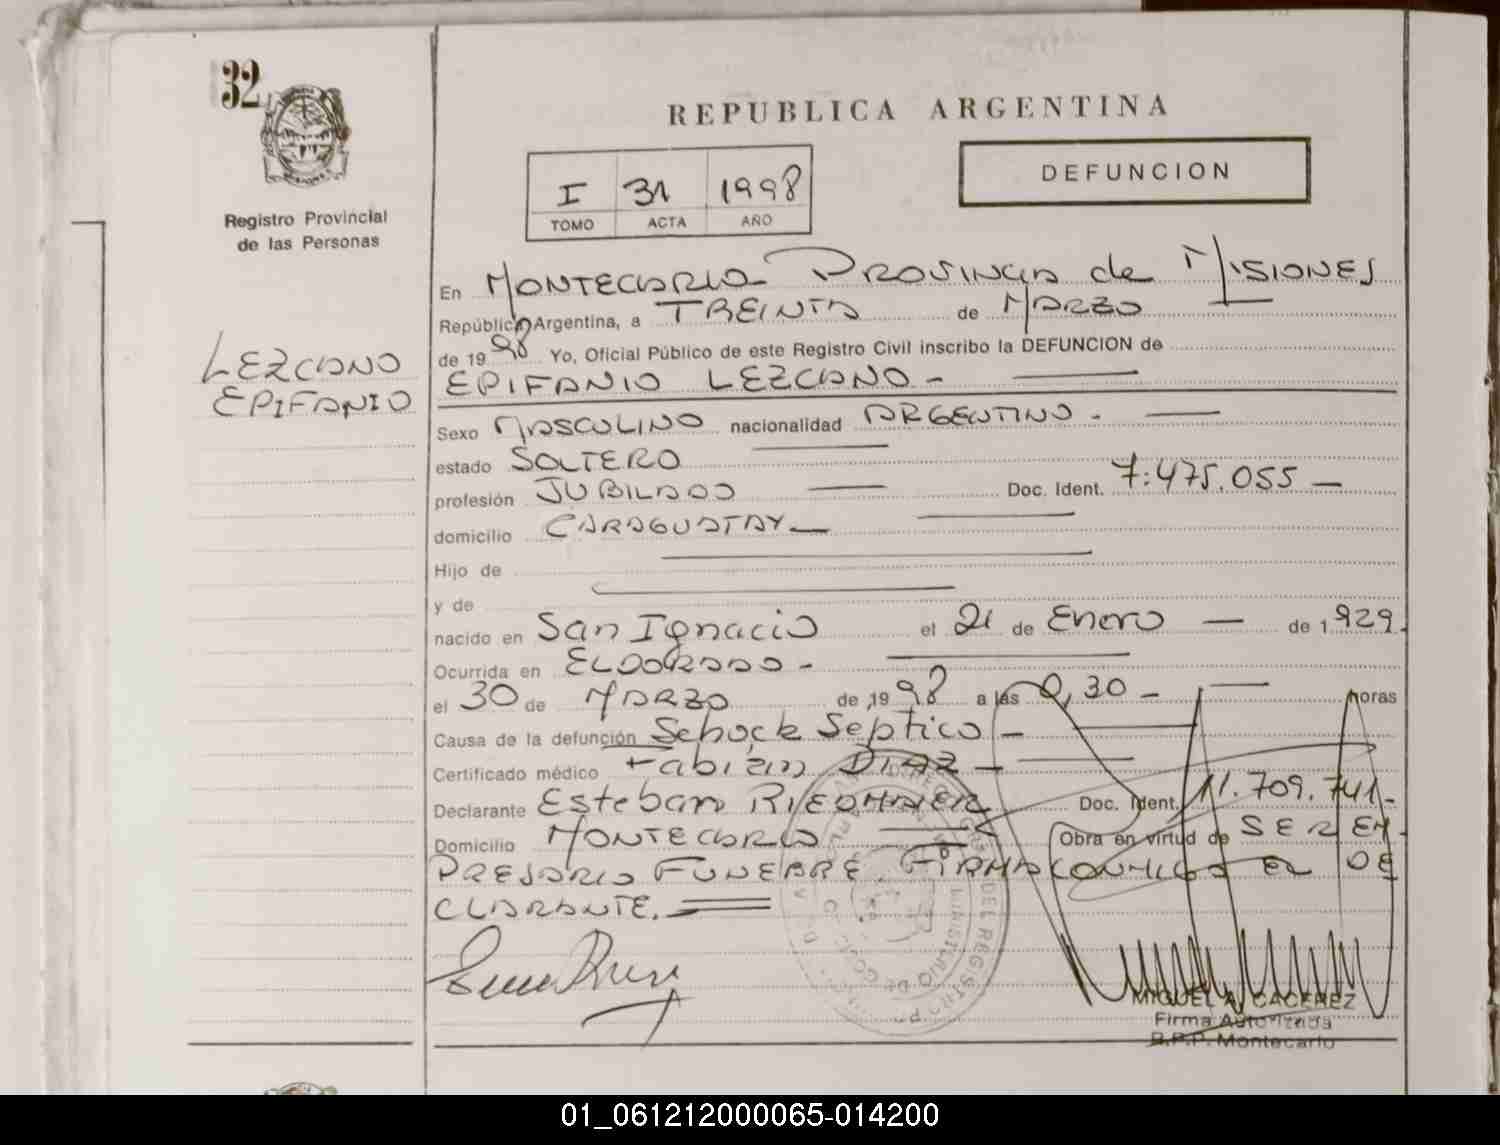 32
REPUBLICA ARGENTINA
DEFUNCION
I 31 1998
TOMO ACTA AÑO
Registro Provincial
de las Personas
LEZCANO
EPIFANIO
En MONTECARLO PROVINCIA de MISIONES
República Argentina, a TREINTA de MARZO
de 1998 Yo, Oficial Público de este Registro Civil inscribo la DEFUNCION de
EPIFANIO LEZCANO -
Sexo MASCULINO nacionalidad ARGENTINO -
estado SOLTERO
profesión JUBILADO Doc. Ident. 7.475.055 -
domicilio CARAGUATAY -
Hijo de
y de
nacido en San Ignacio el 21 de Enero - de 1.929.
Ocurrida en ELDORADO -
el 30 de MARZO de 1998 a las 0,30 - horas
Causa de la defunción Schock Septico -
Certificado médico Fabián DIAZ -
Declarante Esteban Doc. Ident. 11.709.741-
Domicilio MONTECARLO Obra en virtud de SER EM-
PRESARIO FUNEBRE. FIRMA CONMIGO EL DE
CLARANTE.
MIGUEL A. CACEREZ
Firma Autorizada
R.P.P. Montecarlo
01_061212000065-014200